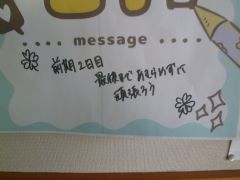 message
前期2日目
最後まであきらめずに
頑張ろう